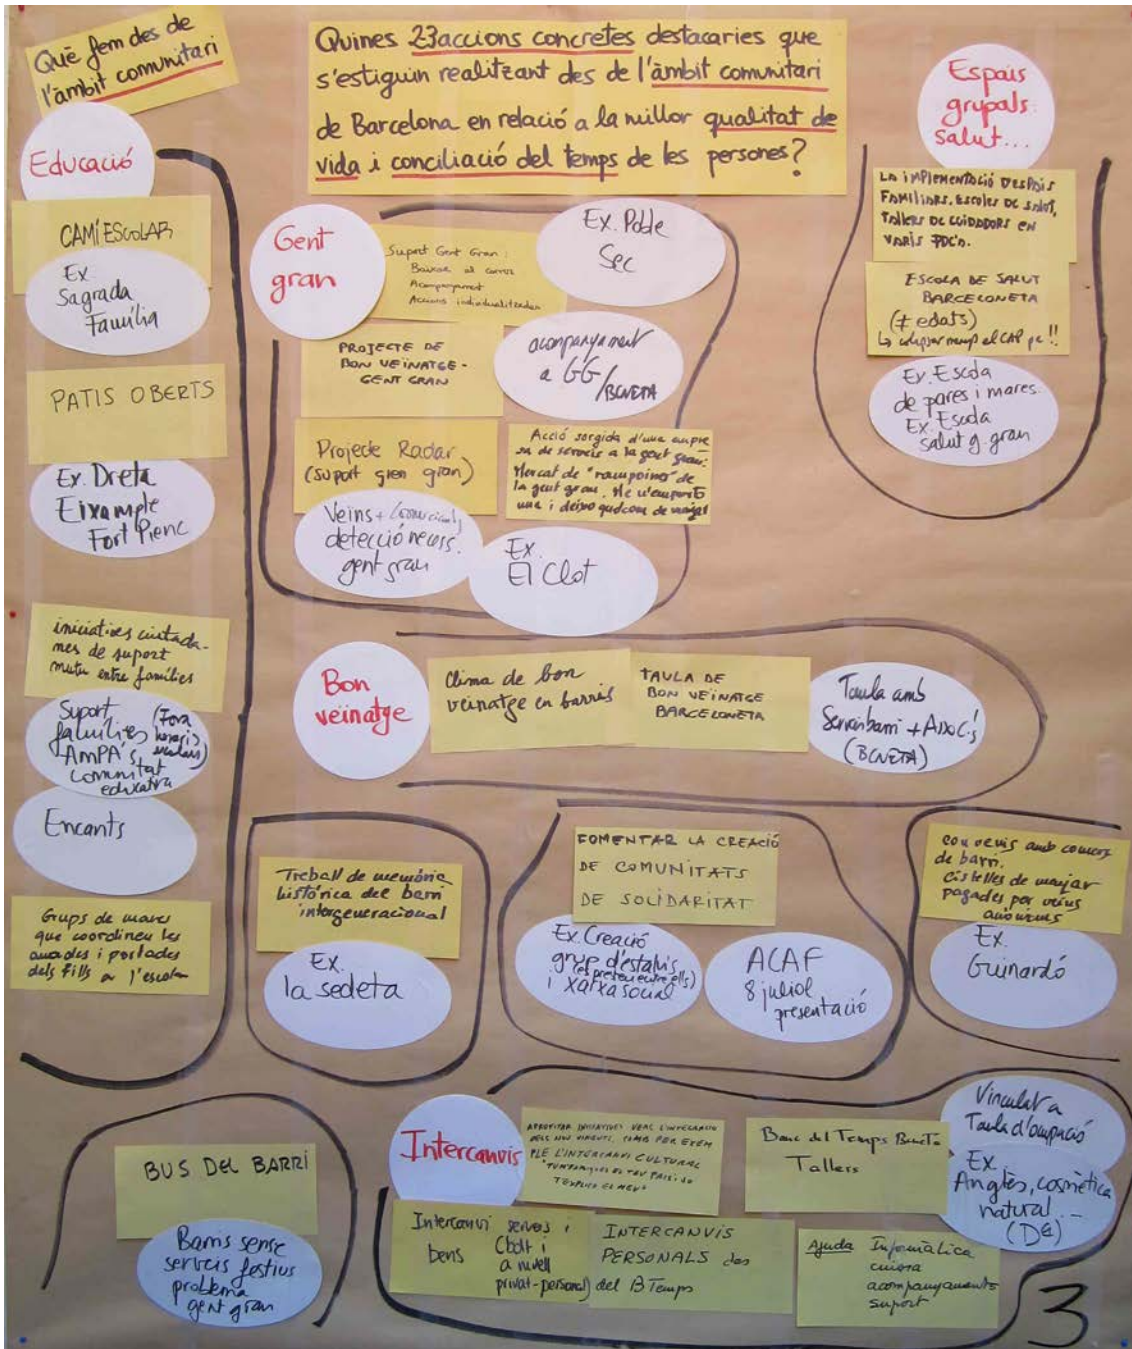 Què fem des de
l'àmbit comunitari
Quines 23accions concretes destacaries que
s'estiguin realitzant des de l'àmbit comunitari
de Barcelona en relació a la millor qualitat de
vida i conciliació del temps de les persones?
Educació
CAMÍ ESCOLAR
Ex.
Sagrada
Família
PATIS OBERTS
Ex. Dreta
Eixample
Fort Pienc
iniciatives ciutada-
nes de suport
mutu entre famílies
Suport
famílies
AMPA's
comunitat
educativa
(Fora
horaris
escolars)
Encants
Grups de mares
que coordinen les
anades i portades
dels fills a l'escola
Gent
gran
Suport Gent Gran:
Baixar al carrer
Acompanyament
Accions individualitzades
Ex. Poble
Sec
PROJECTE DE
BON VEÏNATGE -
GENT GRAN
acompanyament
a GG/BCNETA
Projecte Radar
(suport gren gran)
Veïns +
detecció necess.
gent gran
Acció sorgida d'una empre
sa de serveis a la gent gran:
Mercat de "rampoines" de
la gent gran. Me n'emporto
una i deixo quelcom de menjar
Ex.
El Clot
Espais
grupals
salut...
LA IMPLEMENTACIÓ D'ESPAIS
FAMILIARS, ESCOLES DE SALUT,
TALLERS DE CUIDADORS EN
VARIS PDC's.
ESCOLA DE SALUT
BARCELONETA
(≠ edats)
el CAP !!
Ex. Escola
de pares i mares.
Ex. Escola
salut g. gran
Bon
veïnatge
Clima de bon
veïnatge en barris
TAULA DE
BON VEÏNATGE
BARCELONETA
Taula amb
Serveis barri + Assoc.s
(BCNETA)
Treball de memòria
històrica del barri
intergeneracional
Ex.
la sedeta
FOMENTAR LA CREACIÓ
DE COMUNITATS
DE SOLIDARITAT
Ex. Creació
grup d'estalvis
(es presten entre ells)
i xarxa social
ACAF
8 juliol
presentació
convenis amb comerç
de barri.
Cistelles de menjar
pagades per veïns
anònims
Ex.
Guinardó
BUS DEL BARRI
Barris sense
serveis festius
problema
gent gran
Intercanvis
APROFITAR INICIATIVES VERS L'INTEGRACIÓ
DELS NOU VINGUTS, COMB PER EXEM
PLE L'INTERCANVI CULTURAL
EL TEU PAÍS i JO
T'EXPLICO EL MEU"
Banc del Temps Bcneta
Tallers
Vinculat a
Taula d'ocupació
Ex.
Anglès, cosmètica
natural...
Intercanvi serveis i
bens
a nivell
privat-personal)
INTERCANVIS
PERSONALS des
del BTemps
Ajuda Informàtica
cuina
acompanyaments
suport
3